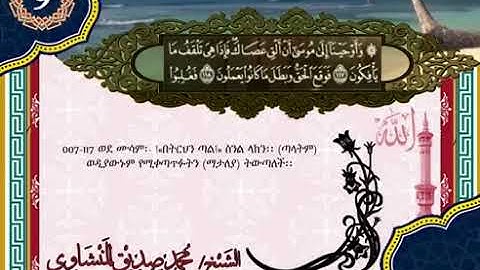 ۞ وَأَوْحَيْنَا إِلَىٰ مُوسَىٰ أَنْ أَلْقِ عَصَاكَ فَإِذَا هِيَ تَلْقَفُ مَا
يَأْفِكُونَ ۝١١٧ فَوَقَعَ الْحَقُّ وَبَطَلَ مَا كَانُوا يَعْمَلُونَ ۝١١٨ فَغُلِبُوا
الله
007-117 ወደ ሙሳም፡- ፤«በትርህን ጣል፤» ስንል ላክን፡፡ (ጣላትም)
ወዲያውኑም የሚቀጣጥፉትን (ማታለያ) ትውጣለች፡፡
الشيخ/ محمد صديق المنشاوي